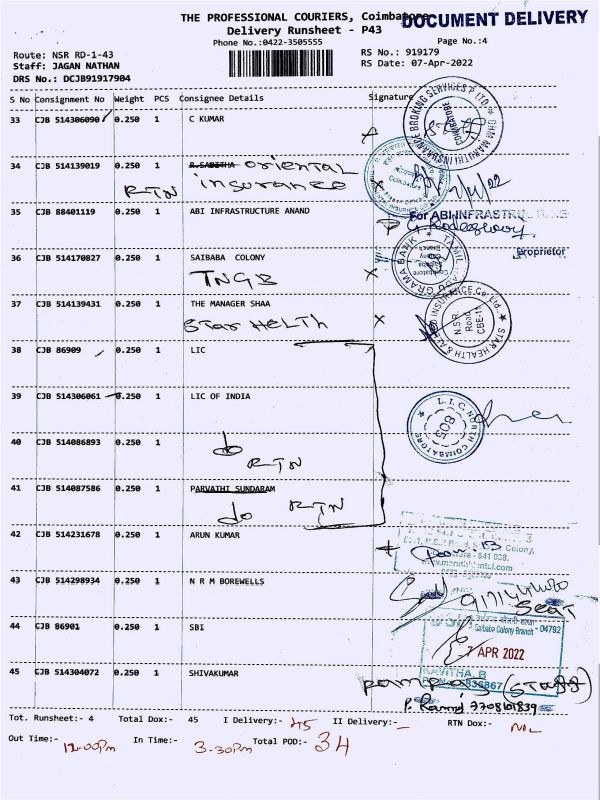 THE PROFESSIONAL COURIERS, Coimbatore
DOCUMENT DELIVERY
Delivery Runsheet - P43
Phone No.:0422-3505555
Page No.:4
Route: NSR RD-1-43
RS No.: 919179
Staff: JAGAN NATHAN
RS Date: 07-Apr-2022
DRS No.: DCJB91917904
S No Consignment No Weight PCS Consignee Details Signature
33 CJB 514306090 0.250 1 C KUMAR
34 CJB 514139019 0.250 1 R.SABITHA oriental
RTN insurance
35 CJB 88401119 0.250 1 ABI INFRASTRUCTURE ANAND
For ABI INFRASTRU
proprietor
36 CJB 514170827 0.250 1 SAIBABA COLONY
TNGB
37 CJB 514139431 0.250 1 THE MANAGER SHAA
Star Helth
N.S.R. Road CBE-11
38 CJB 86909 0.250 1 LIC
39 CJB 514306061 0.250 1 LIC OF INDIA
L.I.C. NORTH COIMBATORE
40 CJB 514086893 0.250 1
do RTN
41 CJB 514087586 0.250 1 PARVATHI SUNDARAM
do RTN
42 CJB 514231678 0.250 1 ARUN KUMAR
43 CJB 514298934 0.250 1 N R M BOREWELLS
Seat
44 CJB 86901 0.250 1 SBI
Saibaba Colony Branch - 04792
7 APR 2022
KAVITHA. B
45 CJB 514304072 0.250 1 SHIVAKUMAR
(Staff)
7708101839
Tot. Runsheet:- 4 Total Dox:- 45 I Delivery:- 45 II Delivery:- RTN Dox:- NIL
Out Time:- 12.00Pm In Time:- 3.30Pm Total POD:- 34